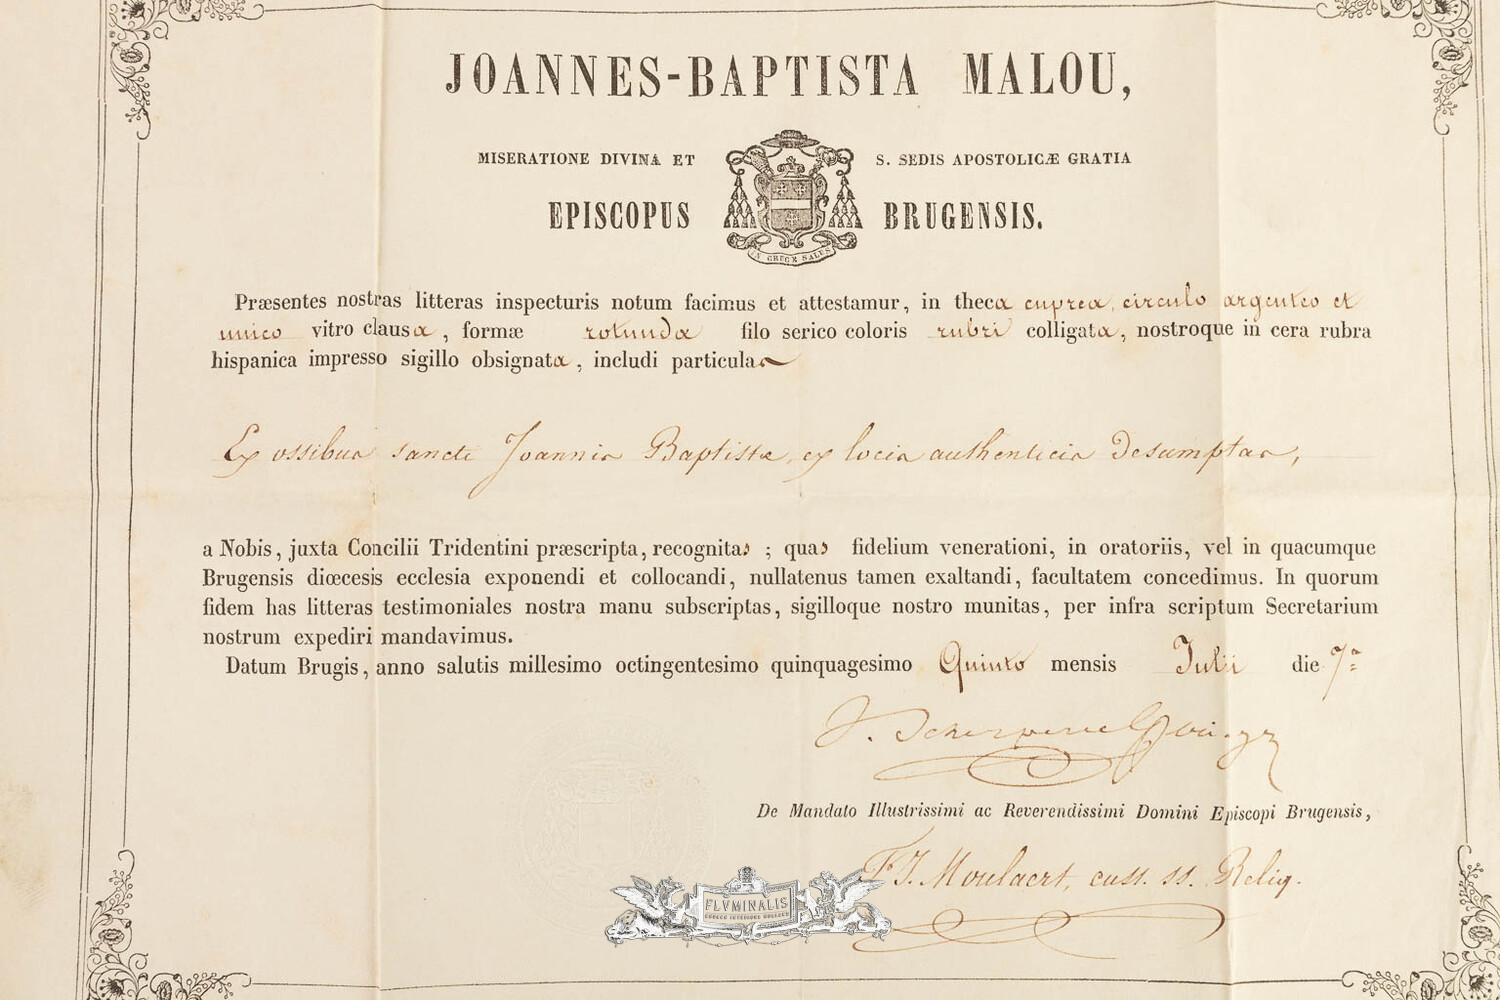 JOANNES-BAPTISTA MALOU,
MISERATIONE DIVINA ET S. SEDIS APOSTOLICÆ GRATIA
EPISCOPUS BRUGENSIS.
IN CRUCE SALUS
Præsentes nostras litteras inspecturis notum facimus et attestamur, in theca cuprea, circulo argenteo et
unico vitro clausa, formæ rotunda filo serico coloris rubri colligata, nostroque in cera rubra
hispanica impresso sigillo obsignata, includi particulas
Ex ossibus sancti Joannis Baptistæ, ex locis authenticis desumptas,
a Nobis, juxta Concilii Tridentini præscripta, recognitas ; quas fidelium venerationi, in oratoriis, vel in quacumque
Brugensis diœcesis ecclesia exponendi et collocandi, nullatenus tamen exaltandi, facultatem concedimus. In quorum
fidem has litteras testimoniales nostra manu subscriptas, sigilloque nostro munitas, per infra scriptum Secretarium
nostrum expediri mandavimus.
Datum Brugis, anno salutis millesimo octingentesimo quinquagesimo Quinto mensis Julii die 7ª
De Mandato Illustrissimi ac Reverendissimi Domini Episcopi Brugensis,
F.J. Moulaert, cust. ss. Reliq.
FLVMINALIS